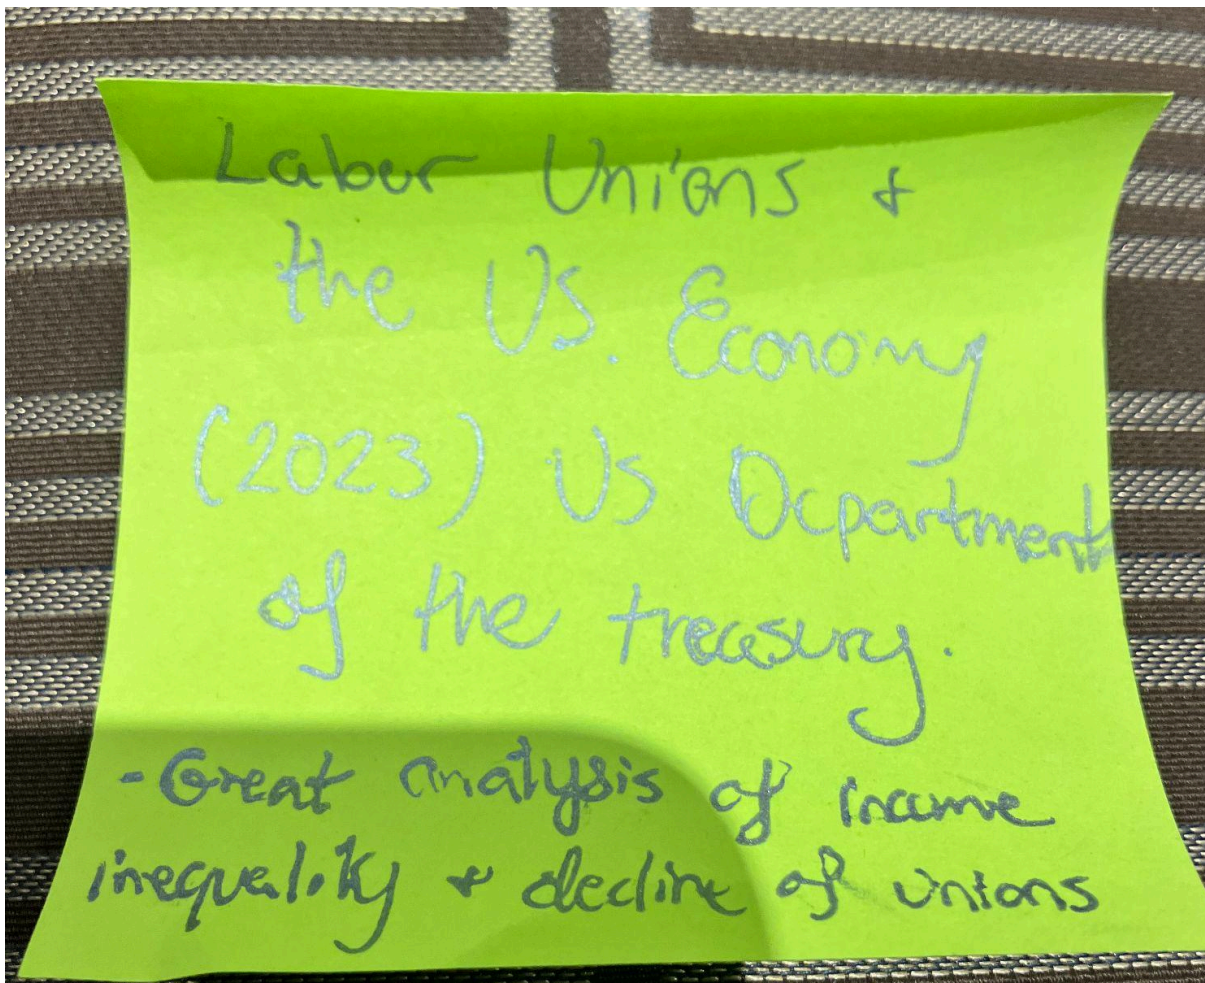 Labor Unions &
the US. Economy
(2023) US Department
of the treasury.
- Great analysis of income
inequality & decline of unions